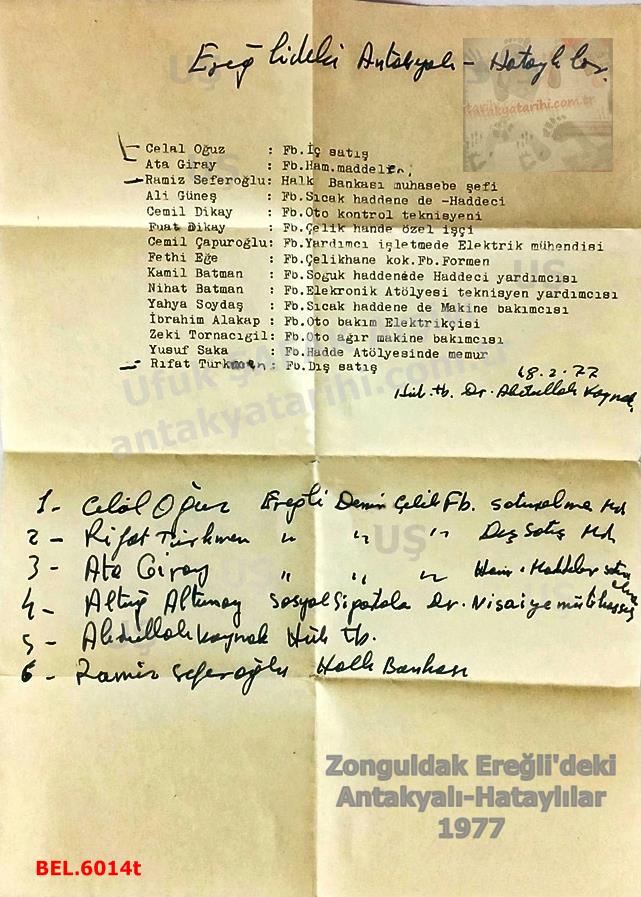 Ereğlideki Antakyalı - Hataylılar
tarih
antakyatarihi.com.tr
Celal Oğuz : Fb.İç satış
Ata Giray : Fb.Ham.maddeler
Ramiz Seferoğlu: Halk Bankası muhasebe şefi
Ali Güneş : Fb.Sıcak haddene de -Haddeci
Cemil Dikay : Fb.Oto kontrol teknisyeni
Fuat Dikay : Fb.Çelik hande özel işçi
Cemil Çapuroğlu: Fb.Yardımcı işletmede Elektrik mühendisi
Fethi Eğe : Fb.Çelikhane kok.Fb.Formen
Kamil Batman : Fb.Soguk haddenede Haddeci yardımcısı
Nihat Batman : Fb.Elekronik Atölyesi teknisyen yardımcısı
Yahya Soydaş : Fb.Sıcak haddene de Makine bakımcısı
İbrahim Alakap : Fb.Oto bakım Elektrikçisi
Zeki Tornacıgil: Fb.Oto ağır makine bakımcısı
Yusuf Saka : Fb.Hadde Atölyesinde memur
Rıfat Türkmen : Fb.Dış satış
18.2.77
Hük. tb. Dr. Abdullah Kaynak
Ufuk
antakyatarihi.com.tr
1- Celâl Oğuz Ereğli Demir Çelik Fb. satınalma Md
2- Rifat Türkmen " " " Dış Satış Md.
3- Ata Giray " " " Ham. Maddeler satın alma
4- Altuğ Altunay Sosyal Sigortala Dr. Nisaiye mütihassıs
5- Abdullah Kaynak Hük tb.
6- Ramiz Seferoğlu Halk Bankası
UŞ
Zonguldak Ereğli'deki
Antakyalı-Hataylılar
1977
BEL.6014t